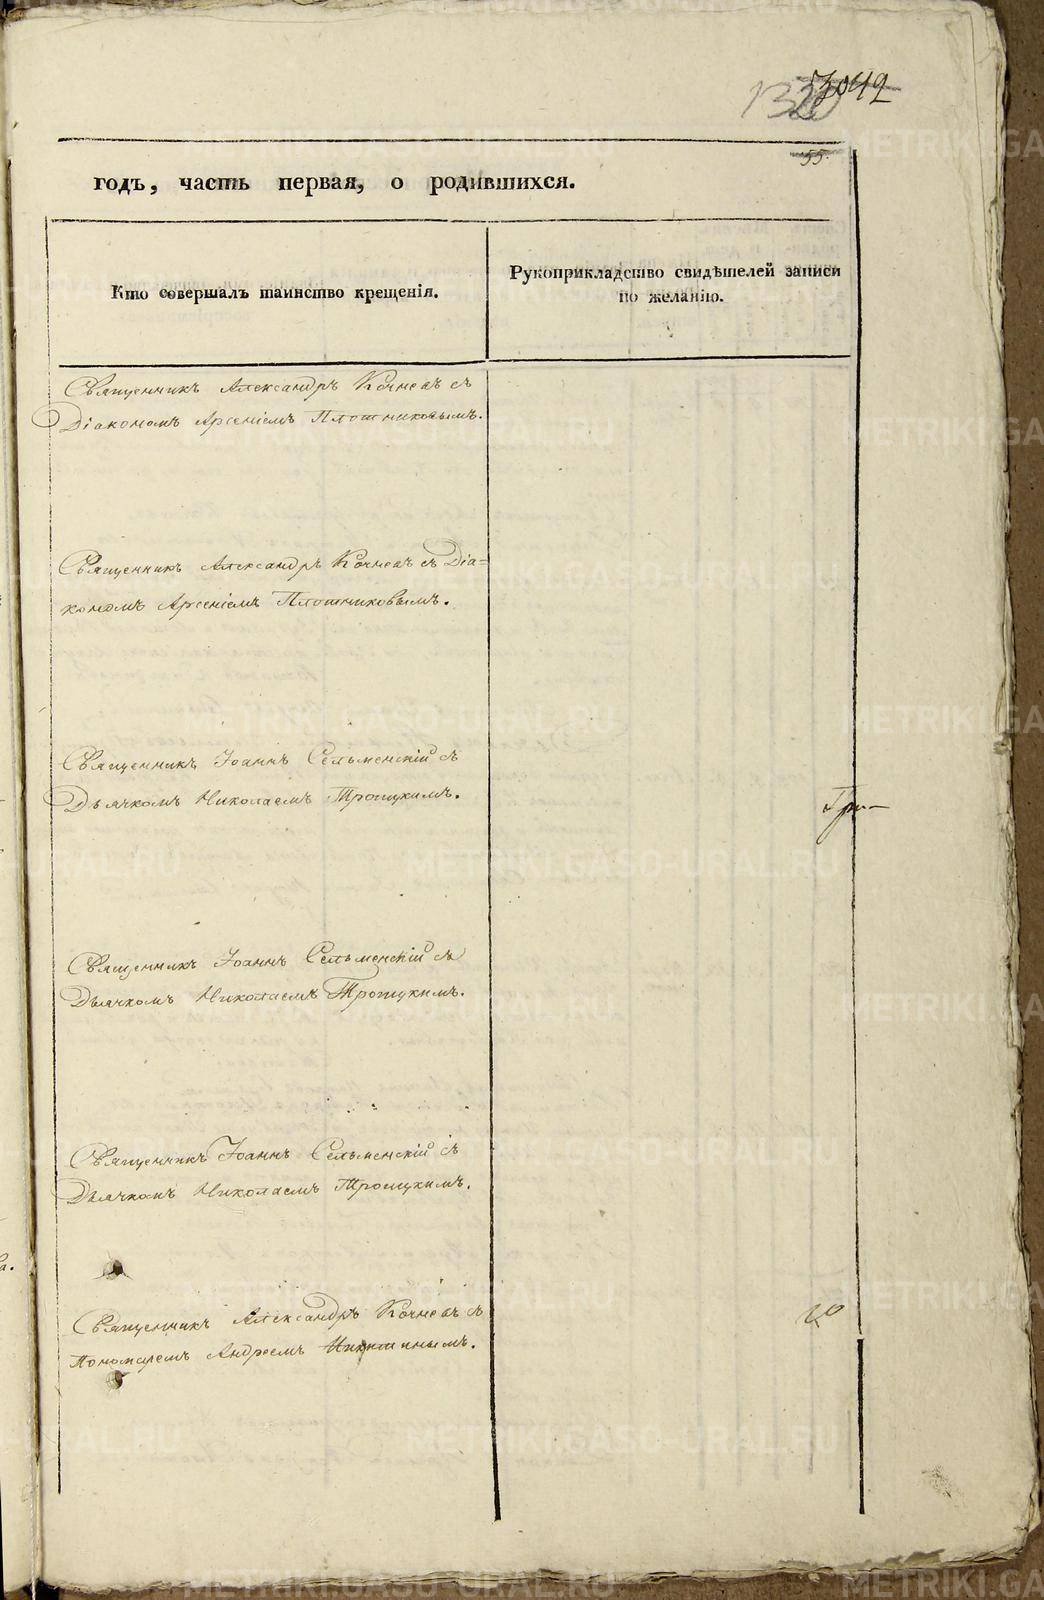 55.
годъ, часть первая, о родившихся.
Кто совершалъ таинство крещенія.
Рукоприкладство свидѣтелей записи
по желанію.
Священникъ Александръ Кочневъ съ
Діакономъ Арсеніемъ Плотниковымъ.
Священникъ Александръ Кочневъ съ Діа=
кономъ Арсеніемъ Плотниковымъ.
Священникъ Іоаннъ Сельменскій съ
Дьячкомъ Николаемъ Троицкимъ.
Священникъ Іоаннъ Сельменскій съ
Дьячкомъ Николаемъ Троицкимъ.
Священникъ Іоаннъ Сельменскій съ
Дьячкомъ Николаемъ Троицкимъ.
Священникъ Александръ Кочневъ съ
Пономаремъ Андреемъ Никитинымъ.
METRIKI.GASO-URAL.RU